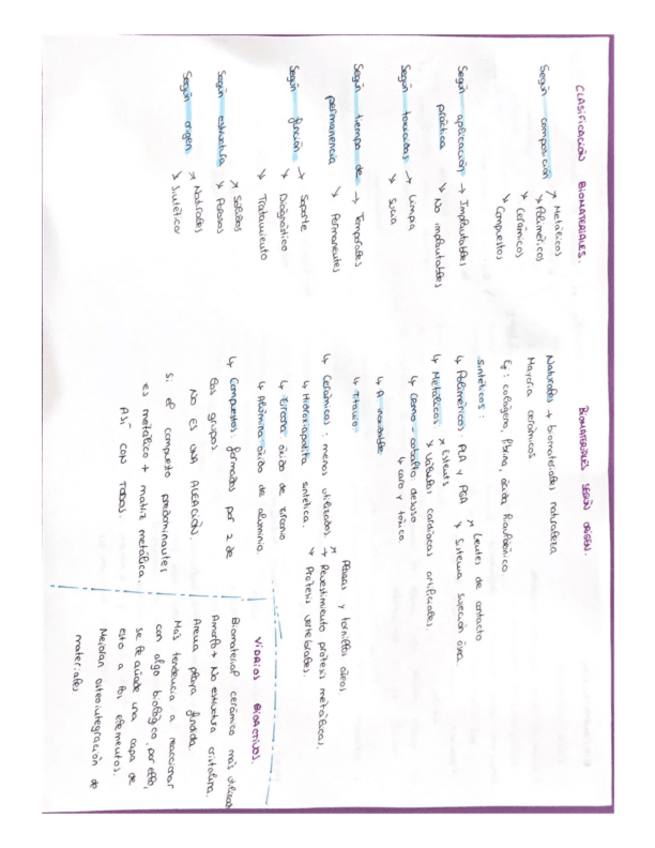 CLASIFICACIÓN BIOMATERIALES.
Según composición ↗ Metálicos
↗ Poliméricos
↘ Cerámicos
↘ Compuestos
Según aplicación → Implantables
práctica ↘ No implantables
Según toxicidad → Limpia
↘ Sucia
Según tiempo de → Temporales
permanencia ↘ Permanentes
Según función → Soporte
↘ Diagnóstico
↘ Tratamiento
Según estructura ↗ Sólidos
↘ Porosos
Según origen ↗ Naturales
↘ Sintético
BIOMATERIALES SEGÚN ORIGEN.
Naturales → biomateriales naturaleza
Mayoría cerámicos
Ej: colágeno, fibrina, ácido hialurónico
Sintéticos:
↳ Poliméricos: PLA y PGA ↗ Lentes de contacto
↘ Sistema sujeción ósea.
↳ Metálicos ↗ Stents
↘ Válvulas cardíacas artificiales.
↳ Cromo-cobalto: desuso
↳ caro y tóxico.
↳ A. inoxidable
↳ Titanio
↳ Cerámicos: menos utilizados ↗ Placas y tornillos óseos.
→ Revestimiento prótesis metálicas.
↘ Prótesis vertebrales.
↳ Hidroxiapatita sintética.
↳ Zirconia óxido de zirconio
↳ Alúmina óxido de aluminio.
↳ Compuestos: formados por 2 de
los grupos.
NO ES UNA ALEACIÓN.
Si el compuesto predominantes
es metálico → matriz metálica.
ASÍ CON TODOS.
VIDRIOS BIOACTIVOS.
Biomaterial cerámico más utilizado
Amorfo → No estructura cristalina.
Arena playa fundida.
Más tendencia a reaccionar
con algo biológico, por ello,
se le añade una capa de
esto a los elementos.
Mejoran osteointegración de
materiales